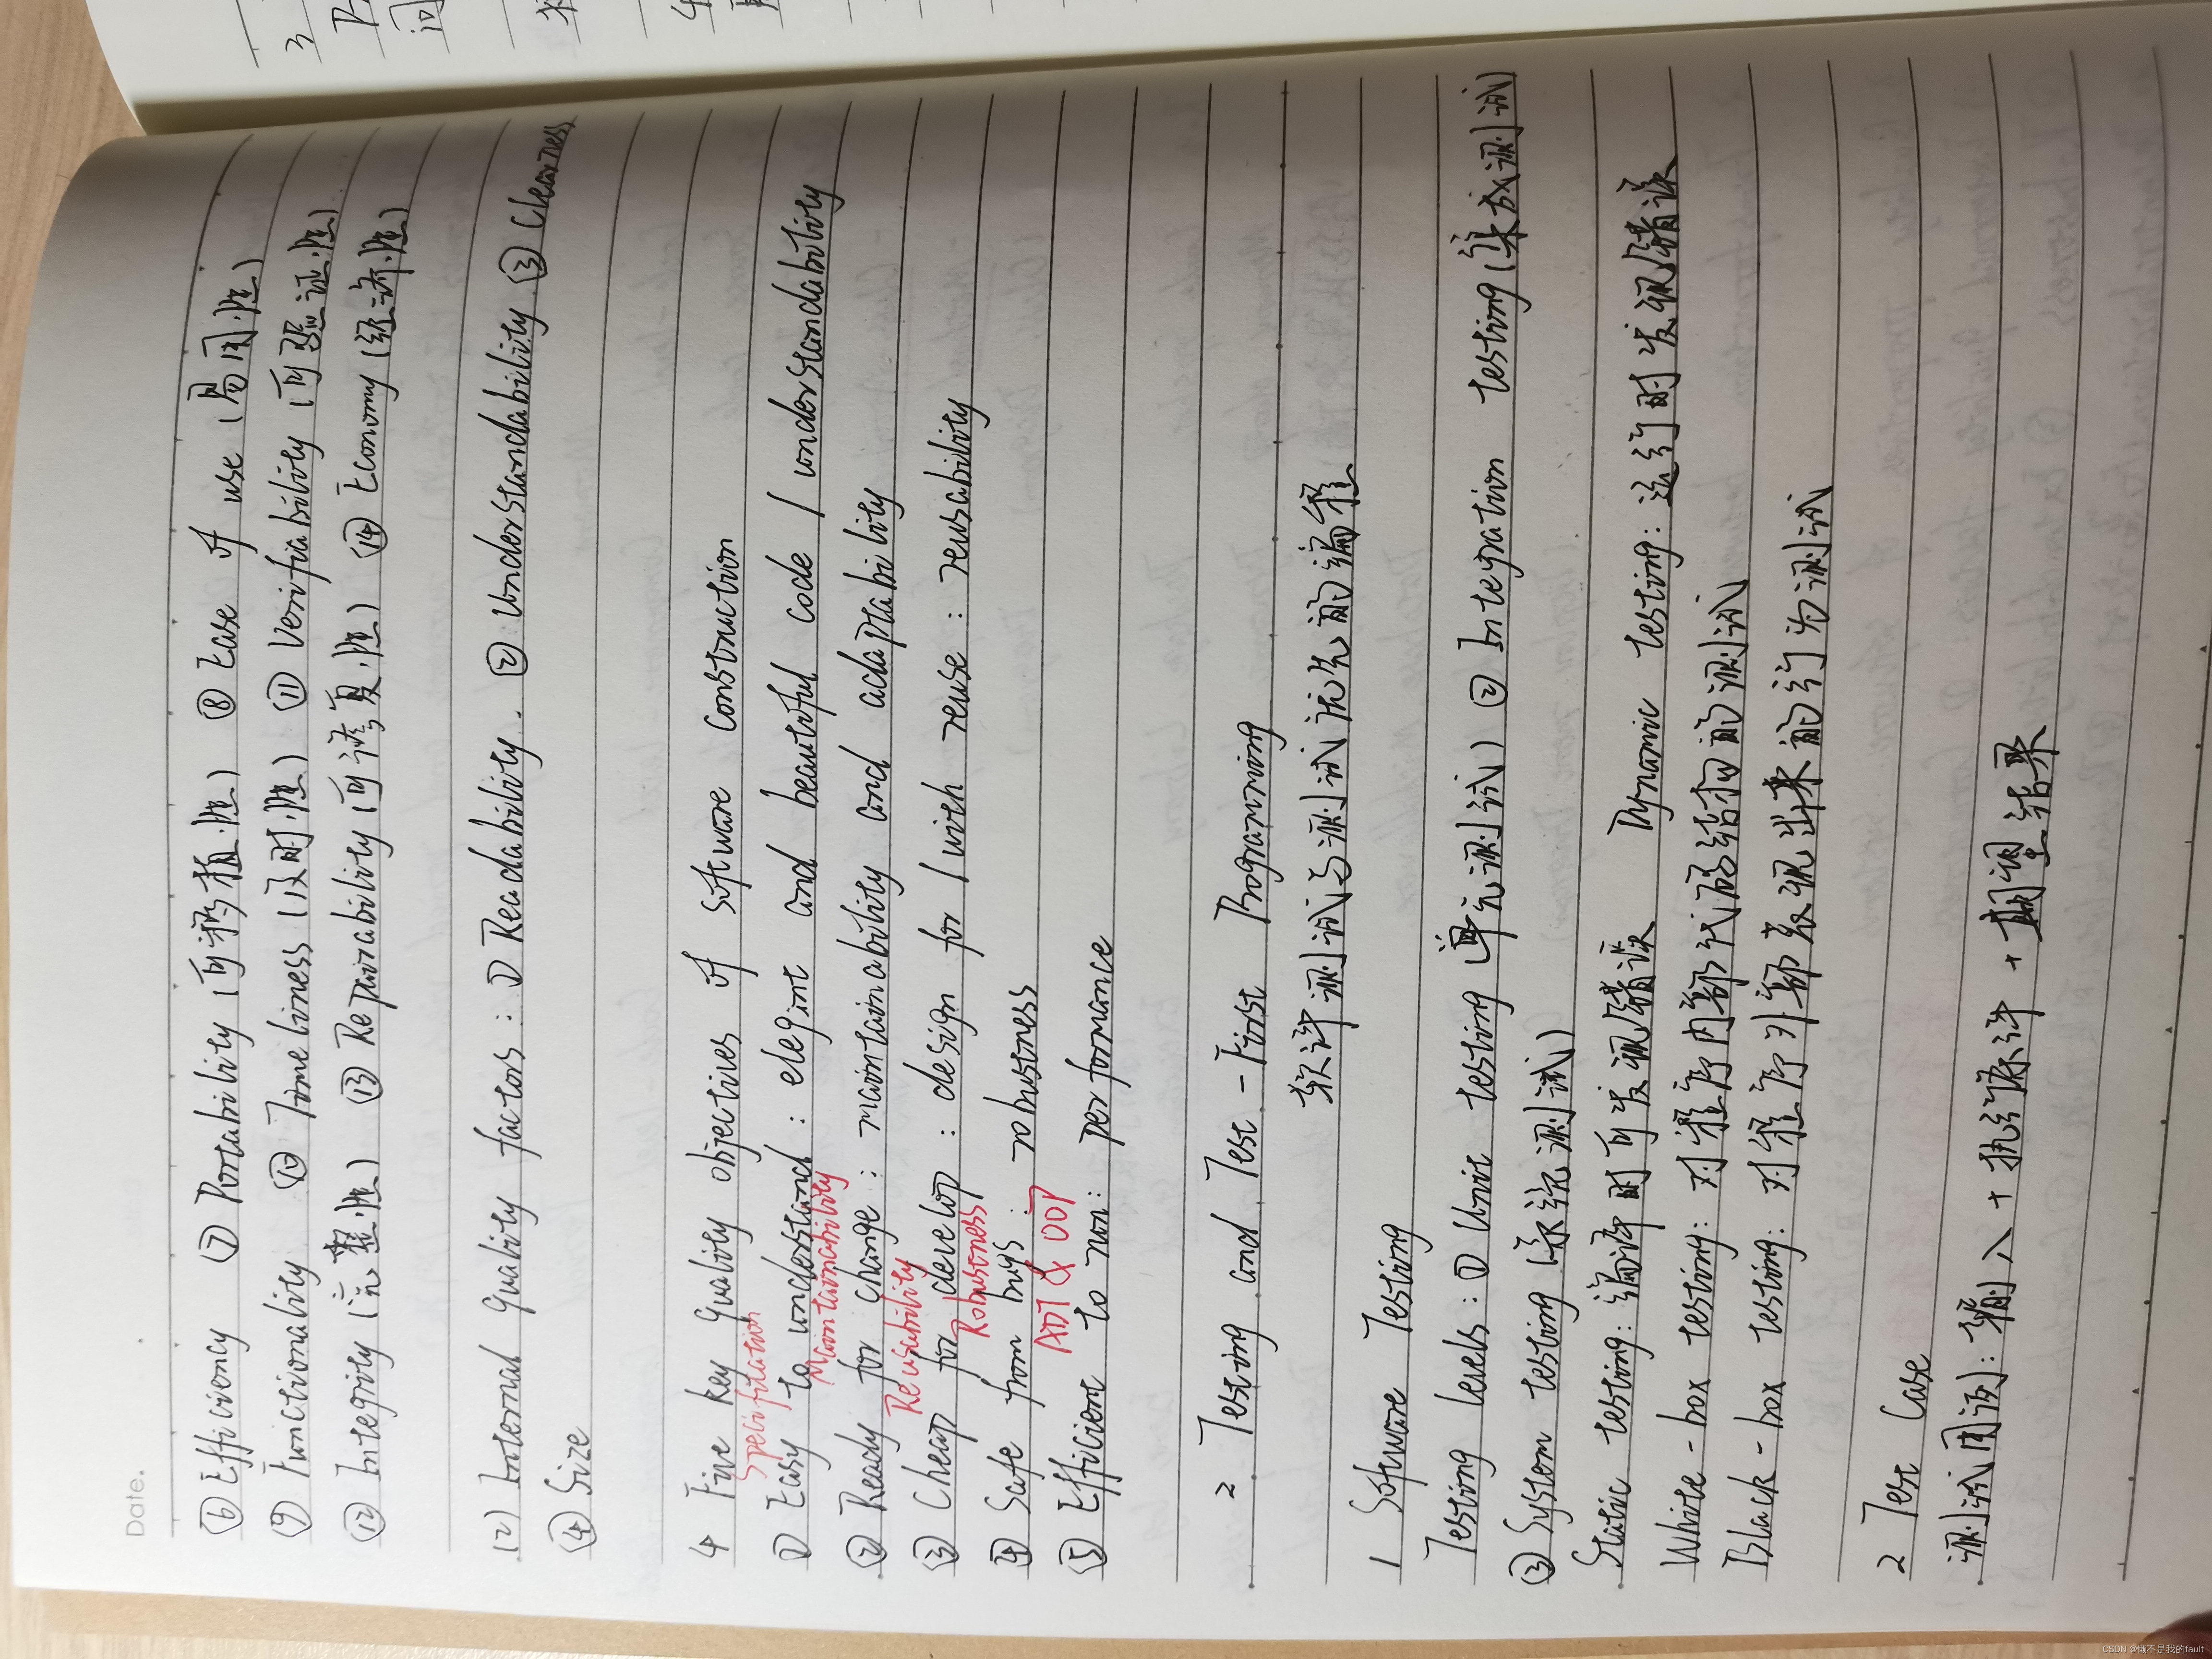 Date.
⑥ Efficiency ⑦ Portability (可移植性) ⑧ Ease of use (易用性)
⑨ Functionality ⑩ Timeliness (及时性) ⑪ Verifiability (可验证性)
⑫ Integrity (完整性) ⑬ Repairability (可修复性) ⑭ Economy (经济性)
(2) Internal quality factors : ① Readability. ② Understandability ③ Clearness
④ Size
4 Five key quality objectives of software construction
Specification
① Easy to understand : elegint and beautiful code / understandability
Maintainability
② Ready for change : maintainability and adaptability
Reusability
③ Cheap for develop : design for / with reuse : reusability
Robustness
④ Safe from bugs : robustness
ADT & OOP
⑤ Efficient to run : performance
2 Testing and Test - First Programming
软件测试与测试优先的编程
1 Software Testing
Testing levels : ① Unit testing (单元测试) ② Integration testing (集成测试)
③ System testing (系统测试)
Static testing : 编译时可发现错误 Dynamic testing : 运行时发现错误
White - box testing : 对程序内部代码结构的测试
Black - box testing : 对程序外部表现出来的行为测试
2 Test Case
测试用例 : 输入 + 执行条件 + 期望结果
3
问
CSDN @懒不是我的fault